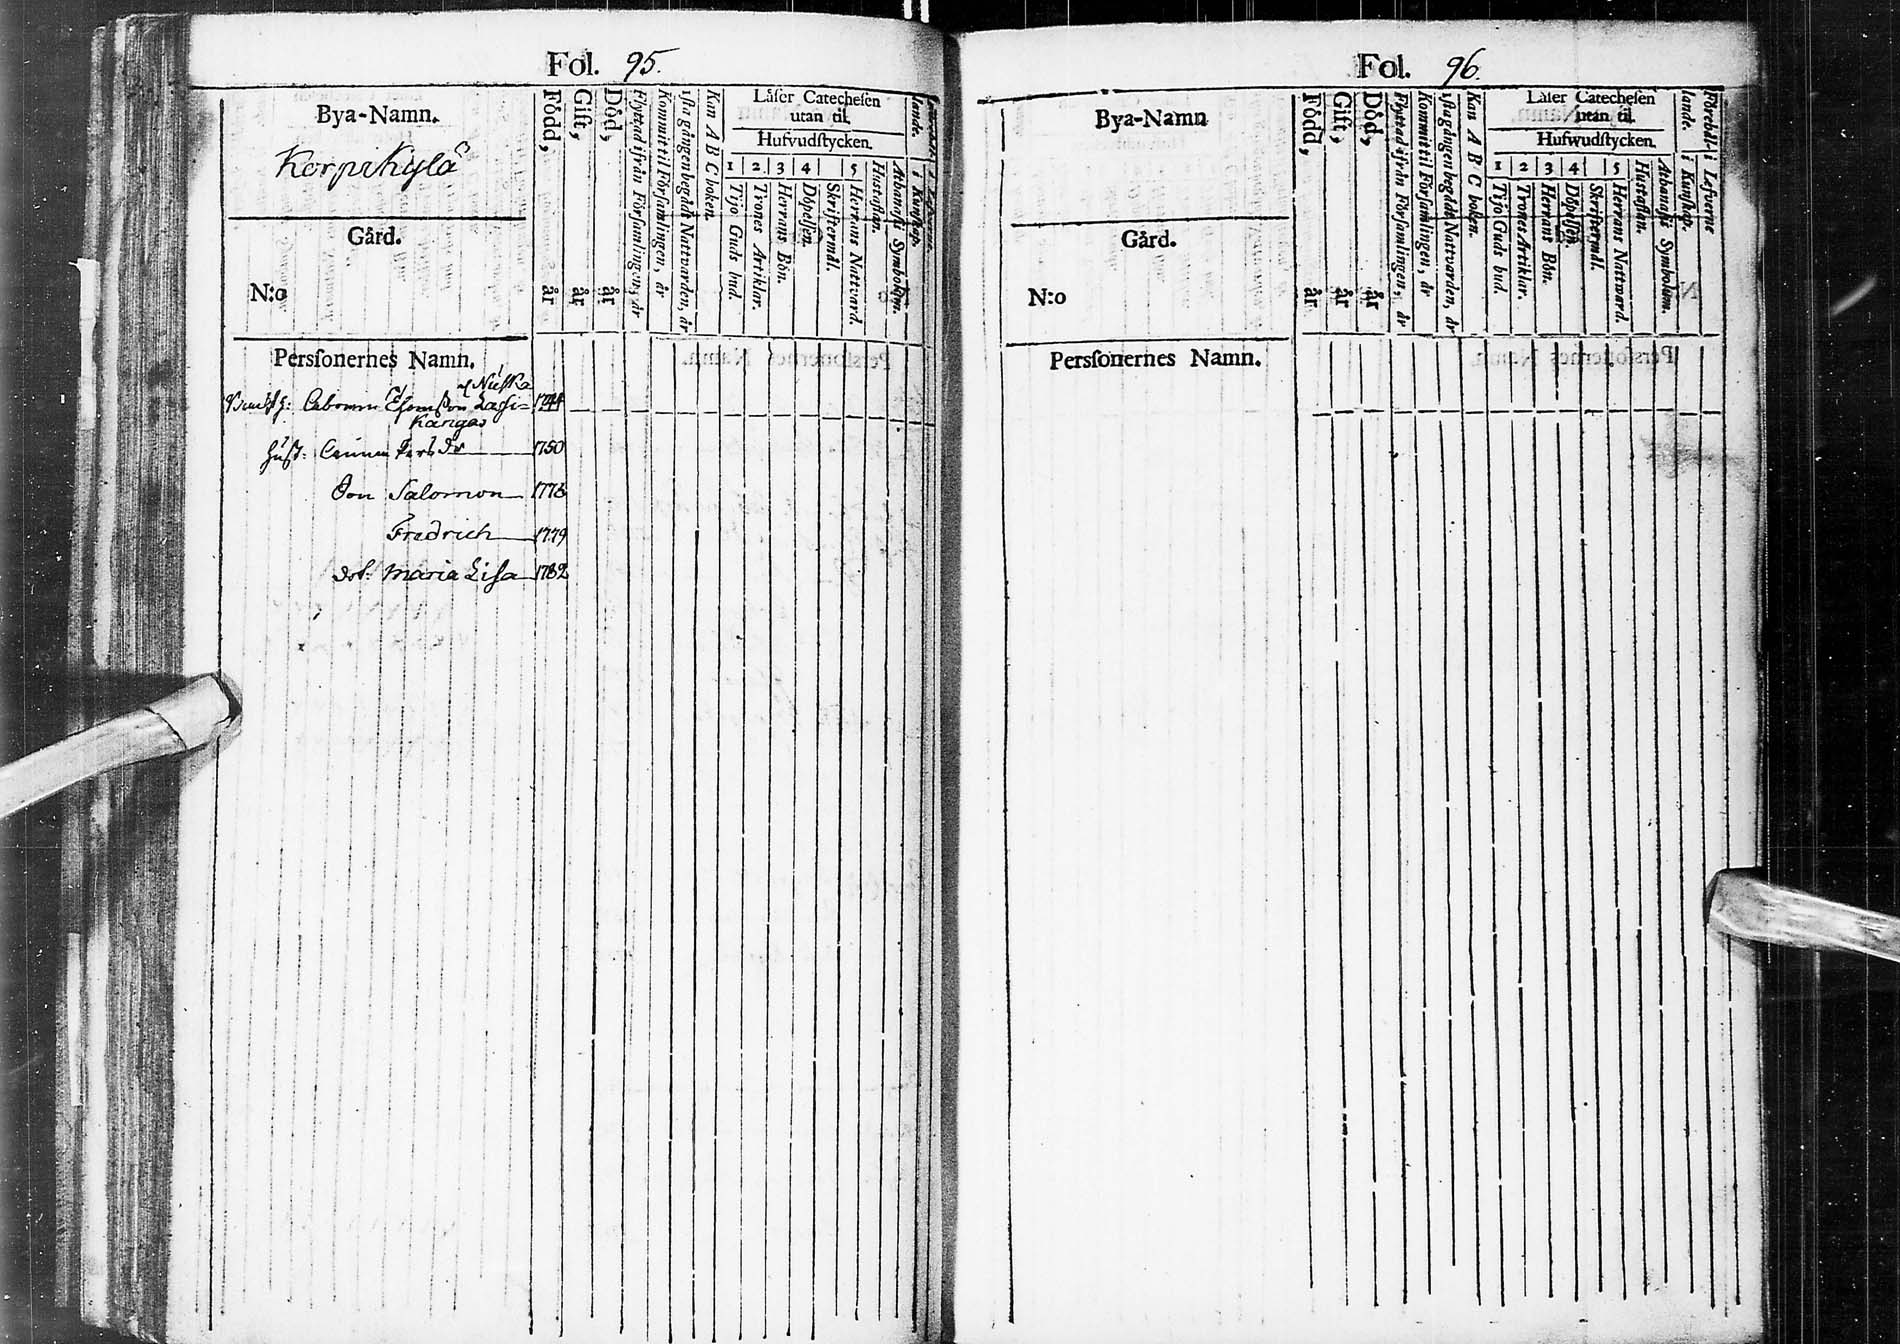 Fol. 95.
Bya-Namn.
Korpikylä
Gård.
N:o
Född, år
Gift, år
Död, år
Flyttad ifrån Församlingen, år
Kommit til Församlingen, år
1sta gången begådt Nattvarden, år
Kan A B C boken.
Läser Catechesen
utan til.
Hufvudstycken.
1 2 3 4 5
Tijo Guds bud.
Trones Artiklar.
Herrans Bön.
Döpelsen.
Skriftermål.
Herrans Nattvard.
Hustaflan.
Athanasii Symbolum.
lande. i Kunskap.
Personernes Namn.
Nuska
Thomsson Lassi- 1744
Kangas
Hust: Pers dr 1750
Son Salomon 1776
Fredrich 1779
dot: Maria Lisa 1782
Fol. 96.
Bya-Namn
Gård.
N:o
Född, år
Gift, år
Död, år
Flyttad ifrån Församlingen, år
Kommit til Församlingen, år
1sta gången begådt Nattvarden, år
Kan A B C boken.
Läser Catechesen
utan til.
Hufwudstycken.
1 2 3 4 5
Tijo Guds bud.
Trones Artiklar.
Herrans Bön.
Döpelsen.
Skriftermål.
Herrans Nattward.
Hustaflan.
Athanasii Symbolum.
lande. i Kunskap.
Förehål- i Lefverne
Personernes Namn.